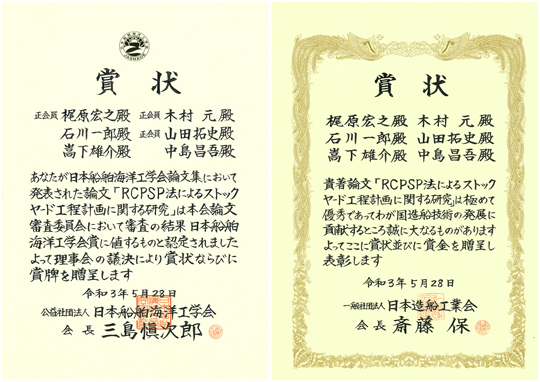 賞状
正会員 梶原宏之殿 正会員 木村 元 殿
石川一郎殿 正会員 山田拓史殿
嵩下雄介殿 中島昌吾殿
あなたが日本船舶海洋工学会論文集において
発表された論文「RCPSP法によるストック
ヤード工程計画に関する研究」は本会論文
審査委員会において審査の結果 日本船舶
海洋工学会賞に値するものと認定されました
よって理事会の議決により賞状ならびに
賞牌を贈呈します
令和3年5月28日
公益社団法人 日本船舶海洋工学会
会長 三島愼次郎
賞状
梶原宏之殿 木村 元 殿
石川一郎殿 山田拓史殿
嵩下雄介殿 中島昌吾殿
貴著論文「RCPSP法によるストック
ヤード工程計画に関する研究」は極めて
優秀であってわが国造船技術の発展に
貢献するところ誠に大なるものがあります
よってここに賞状並びに賞金を贈呈し
表彰します
令和3年5月28日
一般社団法人 日本造船工業会
会長 斎藤 保